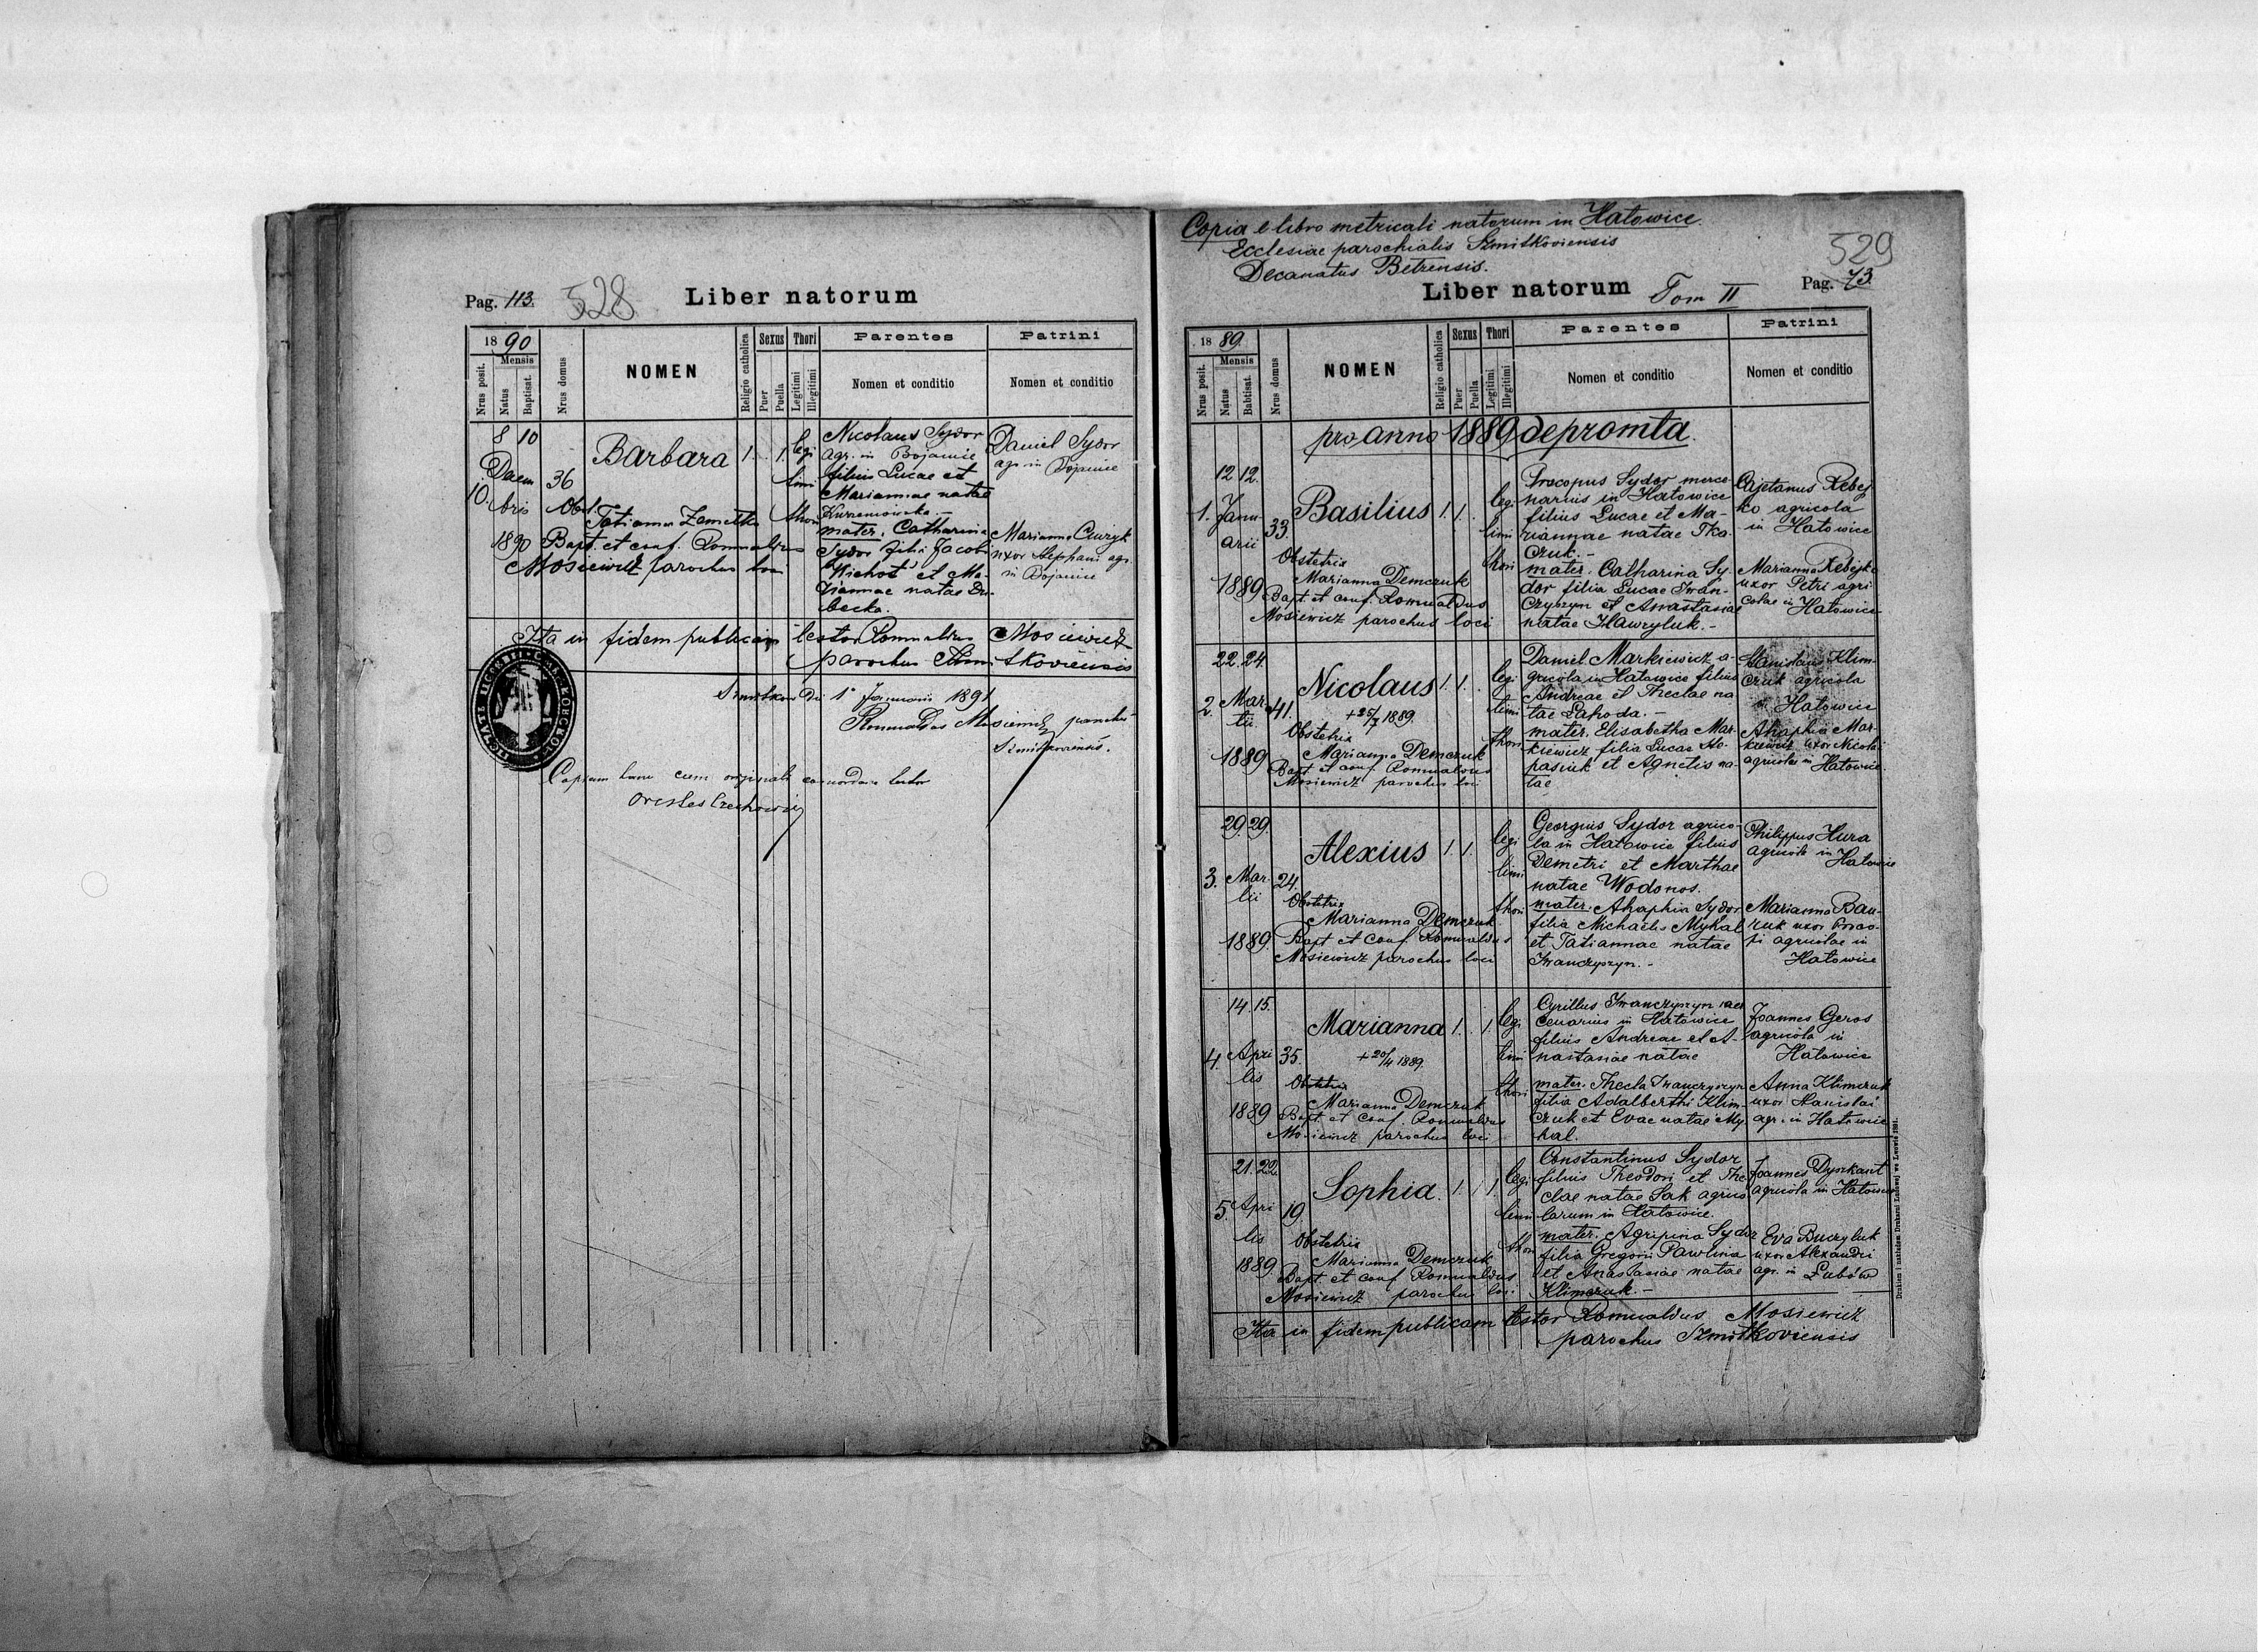 Pag. 113.
528
Liber natorum
1890
Nrus posit.
Mensis
Natus
Baptisat.
Nrus domus
NOMEN
Religio catholica
Sexus
Puer
Puella
Thori
Legitimi
Illegitimi
Parentes
Nomen et conditio
Patrini
Nomen et conditio
10.
8 10
Decem
bris
1890
36
Barbara
1. . 1.
legi
timi
thori
Obst.
Tatianna Zametka
Bapt. et conf. Romualdus
Mosiewicz parochus loci
Nicolaus Sydor
agr. in Bojanice
filius Lucae et
Mariannae natae
mater. Catharina
Sydor filia Jacobi
et Ma-
riannae natae Du-
becka.
Daniel Sydor
agr. in Bojanice
Marianna
uxor Stephani agr.
in Bojanice
Ita in fidem publicam testor Romualdus Mosiewicz
parochus Szmitkoviensis
die 1 Januarii 1891
Romualdus Mosiewicz parochus
Szmitkoviensis.
Copiam hanc cum originali concordare testor
Orestes Czechowicz
Copia e libro metricali natorum in Hatowice.
Ecclesiae parochialis Szmitkoviensis
Decanatus Belzensis.
529
Liber natorum Tom II
Pag. 73
1889.
Nrus posit.
Mensis
Natus
Babtisat.
Nrus domus
NOMEN
Religio catholica
Sexus
Puer
Puella
Thori
Legitimi
Illegitimi
Parentes
Nomen et conditio
Patrini
Nomen et conditio
pro anno 1889 depromta.
1.
12. 12.
Janu
arii
1889
33.
Basilius
1. 1.
legi
timi
thori
Obstetrix
Marianna Demczuk
Bapt. et conf. Romualdus
Mosiewicz parochus loci
Procopus Sydor merce-
narius in Hatowice
filius Lucae et Ma-
riannae natae Tka-
czuk.-
mater. Catharina Sy-
dor filia Lucae Iwan-
czyszyn et Anastasiae
natae Hawryluk.-
Cajetanus Rebej-
ko agricola
in Hatowice
Marianna Rebejko
uxor Petri agri
colae in Hatowice
2.
22. 24.
Mar
tii
1889
41.
Nicolaus
1. 1.
legi
timi
thori
+ 25/7 1889.
Obstetrix
Marianna Demczuk
Bapt. et conf. Romualdus
Mosiewicz parochus loci
Daniel Markiewicz a-
gricola in Hatowice filius
Andreae et Theclae na
tae Lahoda.-
mater. Elisabetha Mar-
kiewicz filia Lucae
et Agnetis na-
tae
Stanislaus Klim-
czuk agricola
in Hatowice
Ahaphia Mar-
kiewicz uxor Nicolai
agricolae in Hatowice.
3.
29. 29.
Mar
tii
1889.
24.
Alexius
1. 1.
legi
timi
thori
Obstetrix
Marianna Demczuk
Bapt et conf. Romualdus
Mosiewicz parochus loci
Georgius Sydor agrico-
la in Hatowice filius
Demetri et Marthae
natae Wodonos.
mater. Ahaphia Sydor
filia Michaelis Myhal
et Tatiannae natae
Iwanczyszyn.-
Philippus Hura
agricola in
Hatowice
Marianna Bau-
ruk uxor
agricolae in
Hatowice
4.
14. 15.
Apri
lis
1889
35.
Marianna
1. . 1.
legi
timi
thori
+ 20/4 1889.
Obstetrix
Marianna Demczuk
Bapt. et conf. Romualdus
Mosiewicz parochus loci
Cyrillus Iwanczyszyn mer
cenarius in Hatowice
filius Andreae et A-
nastasiae natae
mater. Thecla Iwanczyszyn
filia Adalberthi Klim-
czuk et Evae natae My-
hal.
Joannes Geros
agricola in
Hatowice
Anna Klimczuk
uxor Stanislai
agr. in Hatowice
5.
21. 22.
Apri
lis
1889.
19.
Sophia.
1. . 1.
legi
timi
thori
Obstetrix
Marianna Demczuk
Bapt. et conf Romualdus
Mosiewicz parochus loci
Constantinus Sydor
filius Theodori et The
clae natae Sak agrico
larum in Hatowice.
mater. Agripina Sydor
filia Gregorii Pawlina
et Anastasiae natae
Klimczuk.-
Joannes Dyszkant
agricola in Hatowice
Eva Buczyluk
uxor Alexandri
agr. in Lubów
Ita in fidem publicam testor Romualdus Mosiewicz
parochus Szmitkoviensis